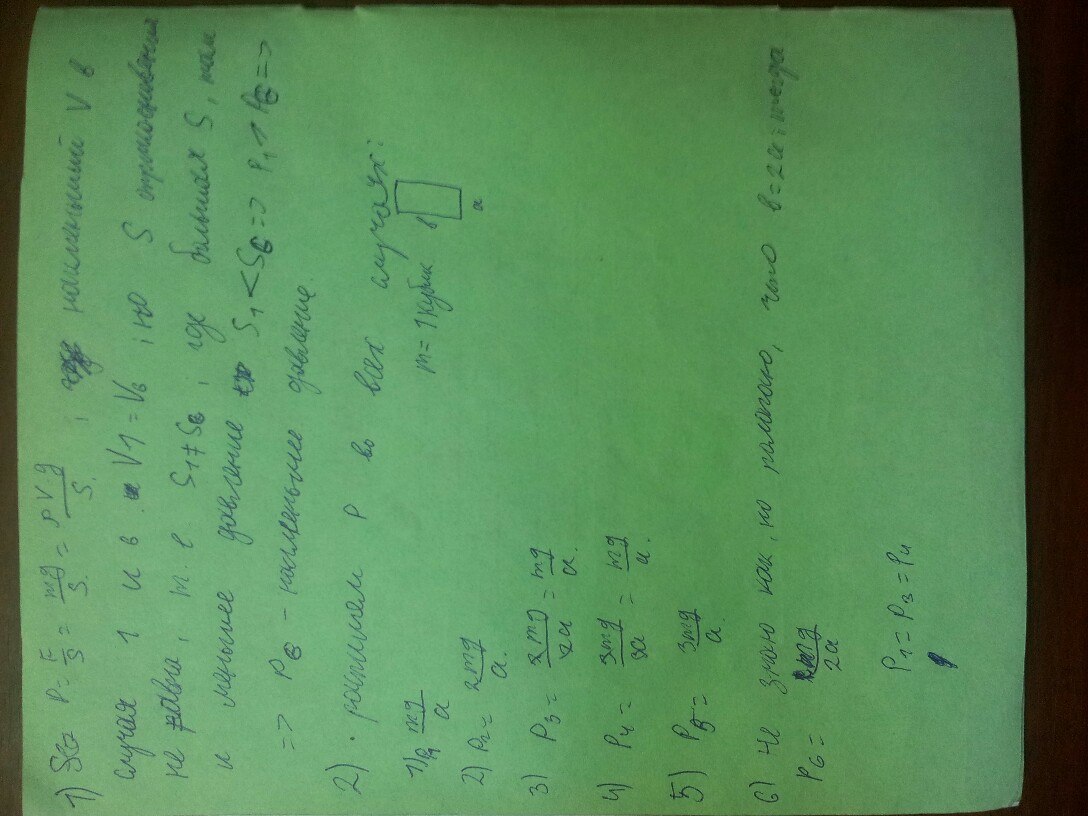 1) P = F/S = mg/S = ρVg/S ; наименьший V в
случая 1 и 6. V1 = V6 ; но S соприкосновения
не равна, т е S1 ≠ S6 , где большая S, там
и меньшее давление S1 < S6 => P1 > P6 =>
=> P6 - наименьшее давление.
2) . распишем P во всех случаях:
m = 1 кубик в a
1) P1 mg/a
2) P2 = 2mg/a.
3) P3 = 2mg/2a = mg/a.
4) P4 = 3mg/3a = mg/a.
5) P5 = 3mg/a
6) Не знаю как, но полагаю, что в = 2a ; тогда
P6 = mg/2a
P1 = P3 = P4